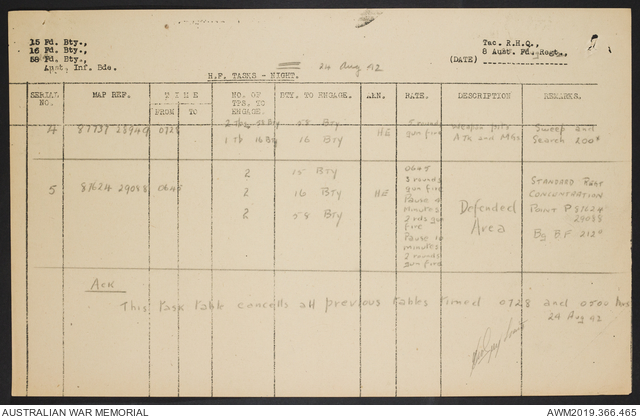 15 Fd. Bty.,
16 Fd. Bty.,
58 Fd. Bty.,
Aust. Inf. Bde.
Tac. R.H.Q.,
8 Aust. Fd. Regt.,
(DATE)
24 Aug 42
H.F. TASKS - NIGHT.
SERIAL NO. MAP REF. TIME FROM TO NO. OF TPS. TO ENGAGE. BTY. TO ENGAGE. AMN. RATE. DESCRIPTION REMARKS.
4 87737 28949 0728 58 Bty HE 5 rounds weapon pits Sweep and
1 Tp 16 Bty 16 Bty gun fire A Tk and MGs Search 200x
5 87624 29088 0645 HE Defended Area
2 15 Bty
2 16 Bty
2 58 Bty
0645
3 rounds
gun fire
Pause 4
minutes
2 rds gun
fire
Pause 10
minutes
2 rounds
gun fire
STANDARD Regt
CONCENTRATION
Point P 87624
29088
212°
Ack
This task table cancels all previous tables timed 0728 and 0500 hrs
24 Aug 42
AUSTRALIAN WAR MEMORIAL
AWM2019.366.465